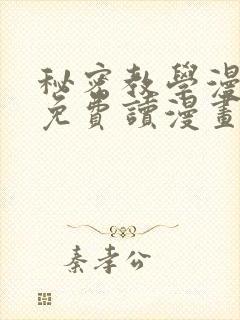 秘密教學漫
免費讀漫畫
秦孝公